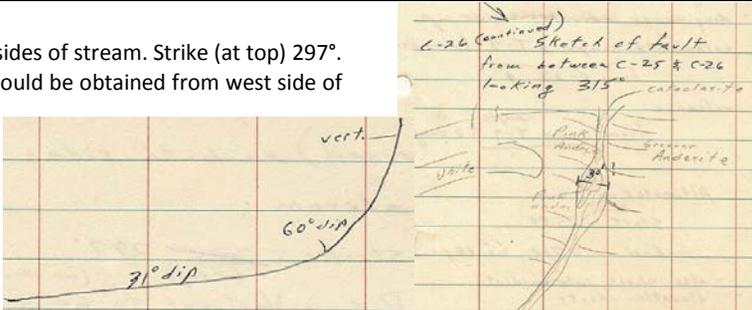 sides of stream. Strike (at top) 297°.
ould be obtained from west side of
vert.
60° dip
31° dip
C-26 (continued)
Sketch of fault
from between C-25 & C-26
looking 315°
cataclasite
Pink
Andesite
Andesite
White
30'
Pink